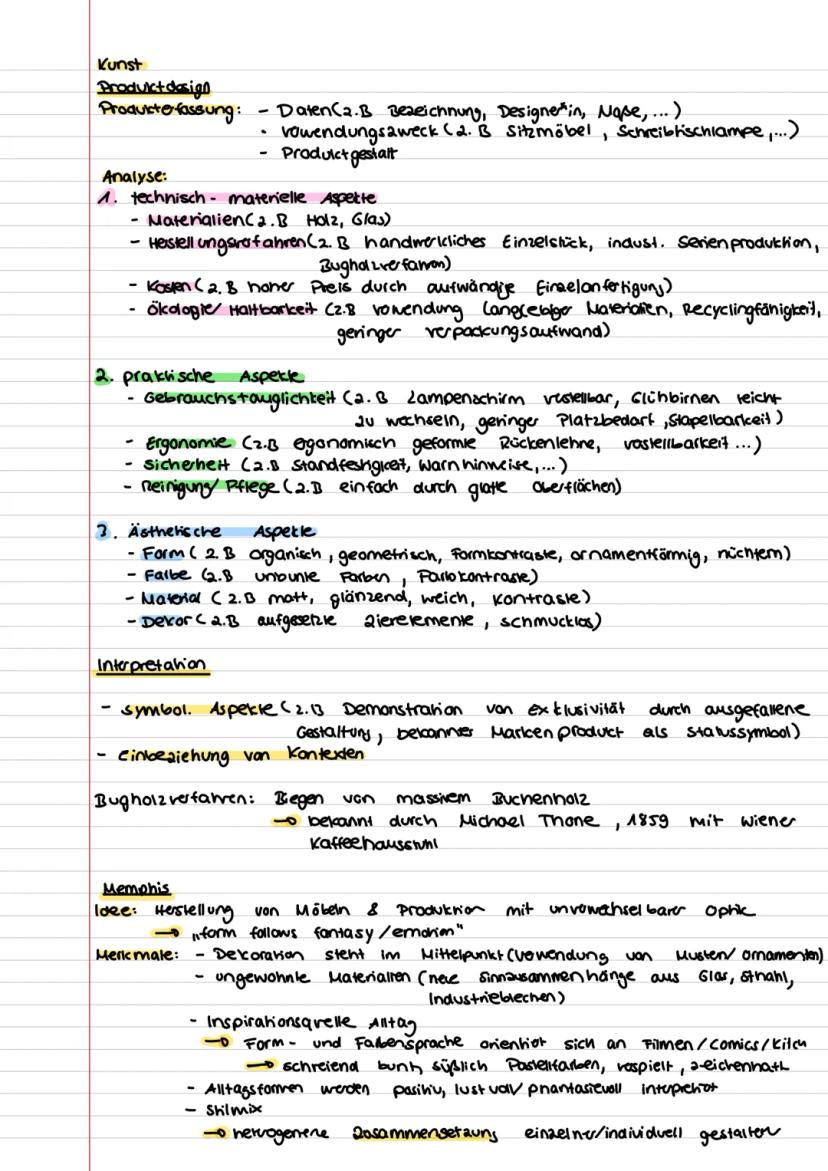 Kunst
Produktdesign
Produkterfassung: - Daten (z.B Bezeichnung, Designer*in, Maße, ...)
- Verwendungszweck (z.B Sitzmöbel, Schreibtischlampe, ...)
- Produktgestalt
Analyse:
1. technisch - materielle Aspekte
- Materialien (z.B Holz, Glas)
- Herstellungsverfahren (z.B handwerkliches Einzelstück, indust. Serienproduktion,
Bugholzverfahren)
- Kosten (z.B hoher Preis durch aufwändige Einzelanfertigung)
- Ökologie/Haltbarkeit (z.B Verwendung langlebiger Materialien, Recyclingfähigkeit,
geringer Verpackungsaufwand)
2. praktische Aspekte
- Gebrauchstauglichkeit (z.B Lampenschirm verstellbar, Glühbirnen leicht
zu wechseln, geringer Platzbedarf, Stapelbarkeit)
- Ergonomie (z.B egonomisch geformte Rückenlehne, Verstellbarkeit ...)
- Sicherheit (z.B Standfestigkeit, Warnhinweise, ...)
- Reinigung/Pflege (z.B einfach durch glatte Oberflächen)
3. Ästhetische Aspekte
- Form (z.B organisch, geometrisch, Formkontraste, ornamentförmig, nüchtern)
- Farbe (z.B unbunte Farben, Farbkontraste)
- Material (z.B matt, glänzend, weich, Kontraste)
- Dekor (z.B aufgesetzte Zierelemente, schmucklos)
Interpretation
- symbol. Aspekte (z.B Demonstration von Exklusivität durch ausgefallene
Gestaltung, bekanntes Markenproduct als Statussymbol)
- Einbeziehung von Kontexten
Bugholzverfahren: Biegen von massivem Buchenholz
→ bekannt durch Michael Thone, 1859 mit Wiener
Kaffeehausstuhl
Memphis
Idee: Herstellung von Möbeln & Produktion mit unverwechselbarer Optik
→ „form follows fantasy/emotion"
Merkmale: - Dekoration steht im Mittelpunkt (Verwendung von Mustern/Ornamenten)
- ungewohnte Materialien (neue Sinnzusammenhänge aus Glas, Stahl,
Industrieblechen)
- Inspirationsquelle Alltag
→ Form- und Farbensprache orientiert sich an Filmen/Comics/Kitch
→ schreiend bunt, süßlich Pastellfarben, verspielt, zeichenhaft
- Alltagsformen werden positiv, lustvoll/phantasievoll interpretiert
- Stilmix
→ heterogenene Zusammensetzung einzelner/individuell gestalten